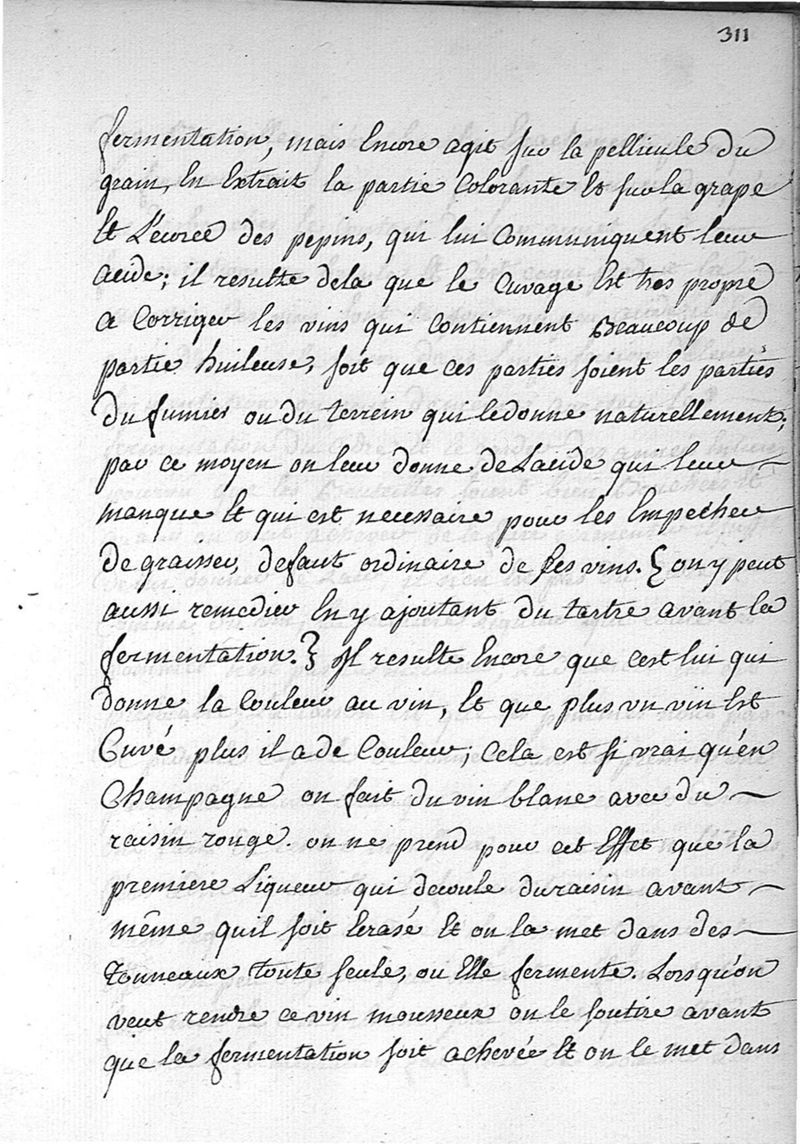 311
fermentation, mais Encore agit sur la pellicule du
grain, En Extrait la partie Colorante Et sur la grape
Et L'ecorce des pepins, qui lui Communiquent leur
acide; il resulte dela que le Cuvage Est tres propre
a Corriger les vins qui Contiennent Beaucoup de
partie huileuse, soit que ces parties soient les parties
du fumier ou du terrein qui le donne naturellement;
par ce moyen on leur donne de Lacide qui leur
manque Et qui est necessaire pour les Empecher
de graisser, defaut ordinaire de ses vins. { on y peut
aussi remedier En y ajoutant du tartre avant la
fermentation. } Il resulte Encore que c'est lui qui
donne la Couleur au vin, Et que plus un vin Est
Cuvé plus il a de Couleur; Cela est si vrai qu'en
Champagne on fait du vin blanc avec du
raisin rouge. on ne prend pour cet Effet que la
premiere Liqueur qui decoule du raisin avant
même quil soit Ecrasé Et on la met dans des
Tonneaux toute seule, ou Elle fermente. Lorsqu'on
veut rendre ce vin mousseux on le soutire avant
que la fermentation soit achevée Et on le met dans